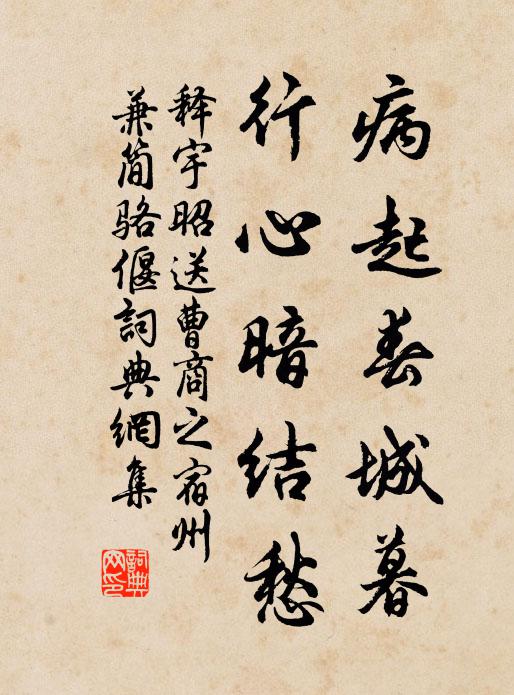 病起春城暮
行心暗结愁
释宇昭送曹商之宿州
兼简骆偃詞典網集
詞典
网印